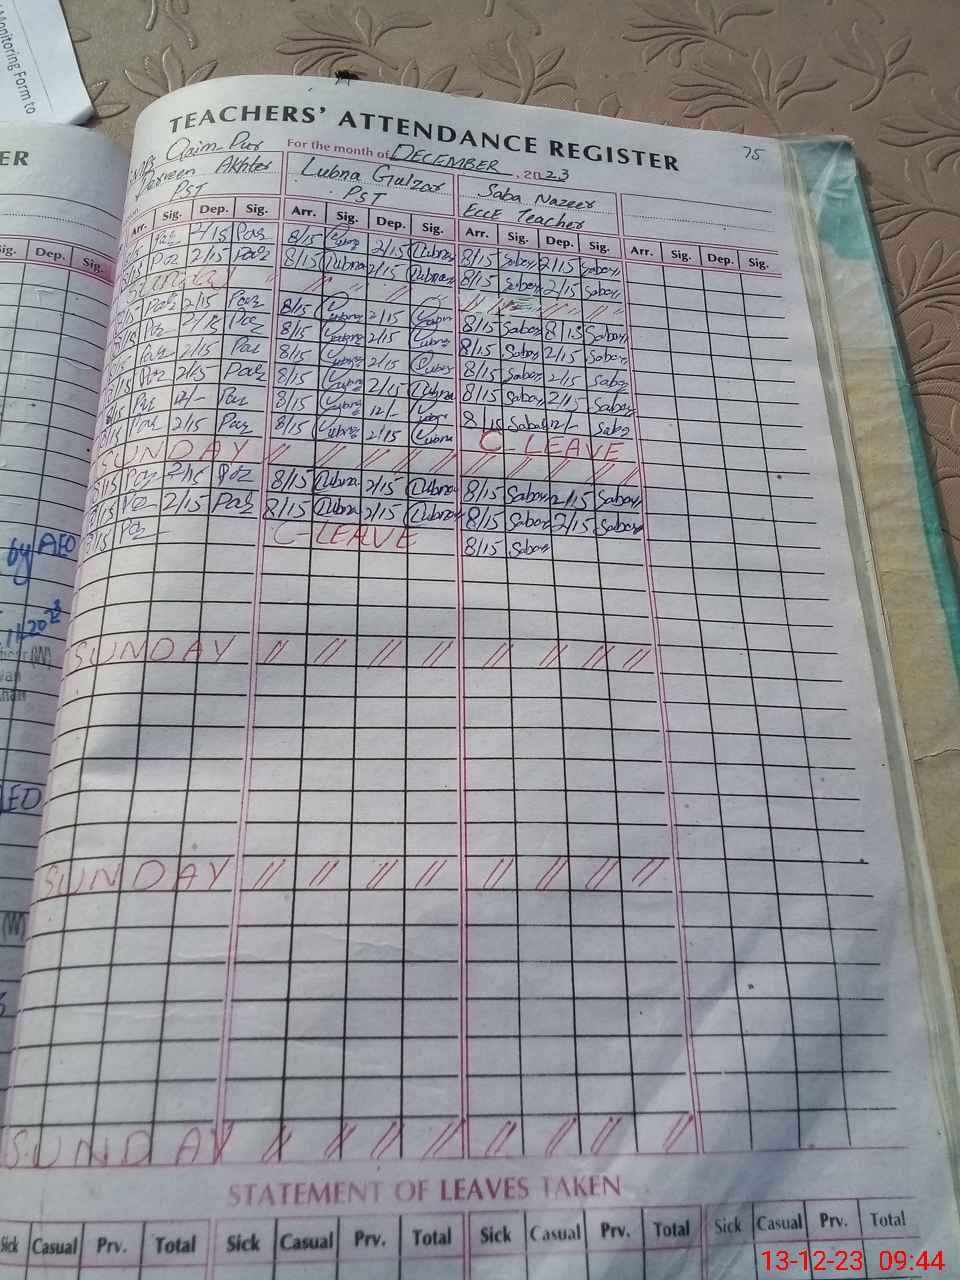 Monitoring Form to
ER
TEACHERS' ATTENDANCE REGISTER
75
Claim-Pur
For the month of DECEMBER, 2023
Akhter
Lubna Gulzar
Saba Nazeer
PST
PST
ECCE Teacher
Sig. Dep. Sig.
Arr. Sig. Dep. Sig. Arr. Sig. Dep. Sig. Arr. Sig. Dep. Sig. Arr. Sig. Dep. Sig.
8/15 Paz 2/15 Paz 8/15 Lubna 2/15 Lubna 8/15 Saba 2/15 Saba
8/15 Paz 2/15 Paz 8/15 Lubna 2/15 Lubna 8/15 Saba 2/15 Saba
SUNDAY // // // // // // // //
8/15 Paz 2/15 Paz 8/15 Lubna 2/15 Lubna 8/15 Saba 8/15 Saba
8/15 Paz 2/15 Paz 8/15 Lubna 2/15 Lubna 8/15 Saba 2/15 Saba
8/15 Paz 2/15 Paz 8/15 Lubna 2/15 Lubna 8/15 Saba 2/15 Saba
8/15 Paz 2/15 Paz 8/15 Lubna 2/15 Lubna 8/15 Saba 2/15 Saba
8/15 Paz 12/- Paz 8/15 Lubna 12/- Lubna 8/15 Saba 12/- Saba
8/15 Paz 2/15 Paz 8/15 Lubna 2/15 Lubna C-LEAVE
SUNDAY // // // // // // // //
8/15 Paz 2/15 Paz 8/15 Lubna 2/15 Lubna 8/15 Saba 2/15 Saba
8/15 Paz 2/15 Paz 8/15 Lubna 2/15 Lubna 8/15 Saba 2/15 Saba
by AEO
8/15 Paz C-LEAVE 8/15 Saba
SUNDAY // // // // // // // //
(W)
SUNDAY // // // // // // // //
(W)
SUNDAY // // // // // // // //
STATEMENT OF LEAVES TAKEN
Sick Casual Prv. Total Sick Casual Prv. Total Sick Casual Prv. Total Sick Casual Prv. Total
13-12-23 09:44